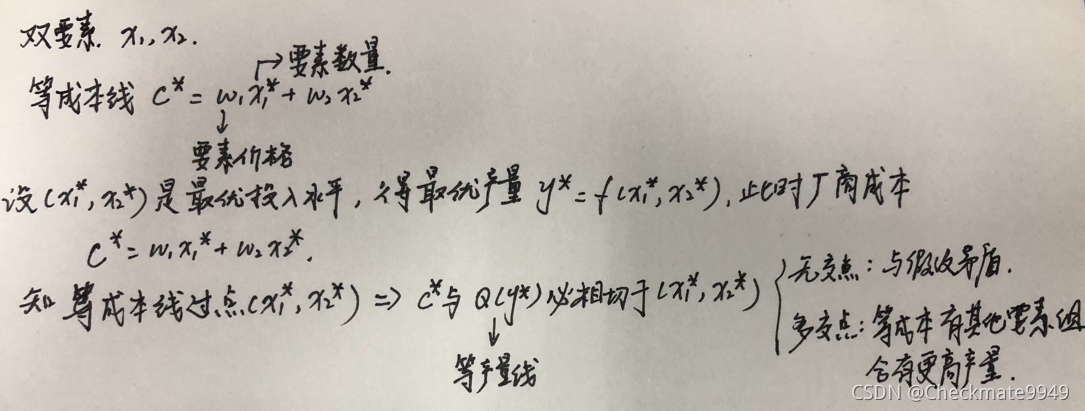 双要素. x₁, x₂.
→要素数量.
等成本线 C* = w₁x₁* + w₂x₂*
↓
要素价格
设(x₁*, x₂*)是最优投入水平, 得最优产量 y* = f(x₁*, x₂*), 此时厂商成本
C* = w₁x₁* + w₂x₂*.
知 等成本线过点(x₁*, x₂*) => C*与Q(y*)必相切于(x₁*, x₂*)
↓
等产量线
无交点: 与假设矛盾.
多交点: 等成本有其他要素组
合有更高产量.
CSDN @Checkmate9949